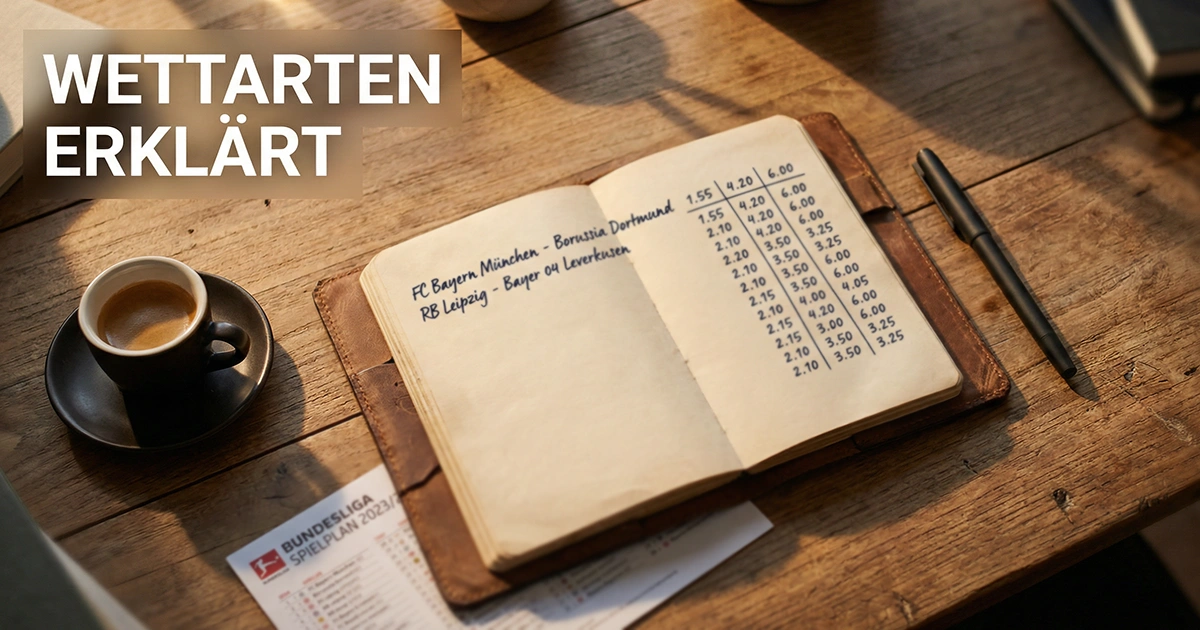 WETTARTEN
ERKLÄRT
FC Bayern München - Borussia Dortmund
RB Leipzig - Bayer 04 Leverkusen
1.55 4.20 6.00
1.55 4.20 6.00
2.10 4.20 6.00
2.10 4.20 6.00
2.20 3.50 3.25
2.10 3.50 3.25
2.10 3.50 6.00
2.15 4.00 6.00
2.10 4.20 4.05
2.15 3.00 6.00
2.10 3.50 3.25
2.10 3.50 3.25
BUNDESLIGA
SPIELPLAN 2023/2